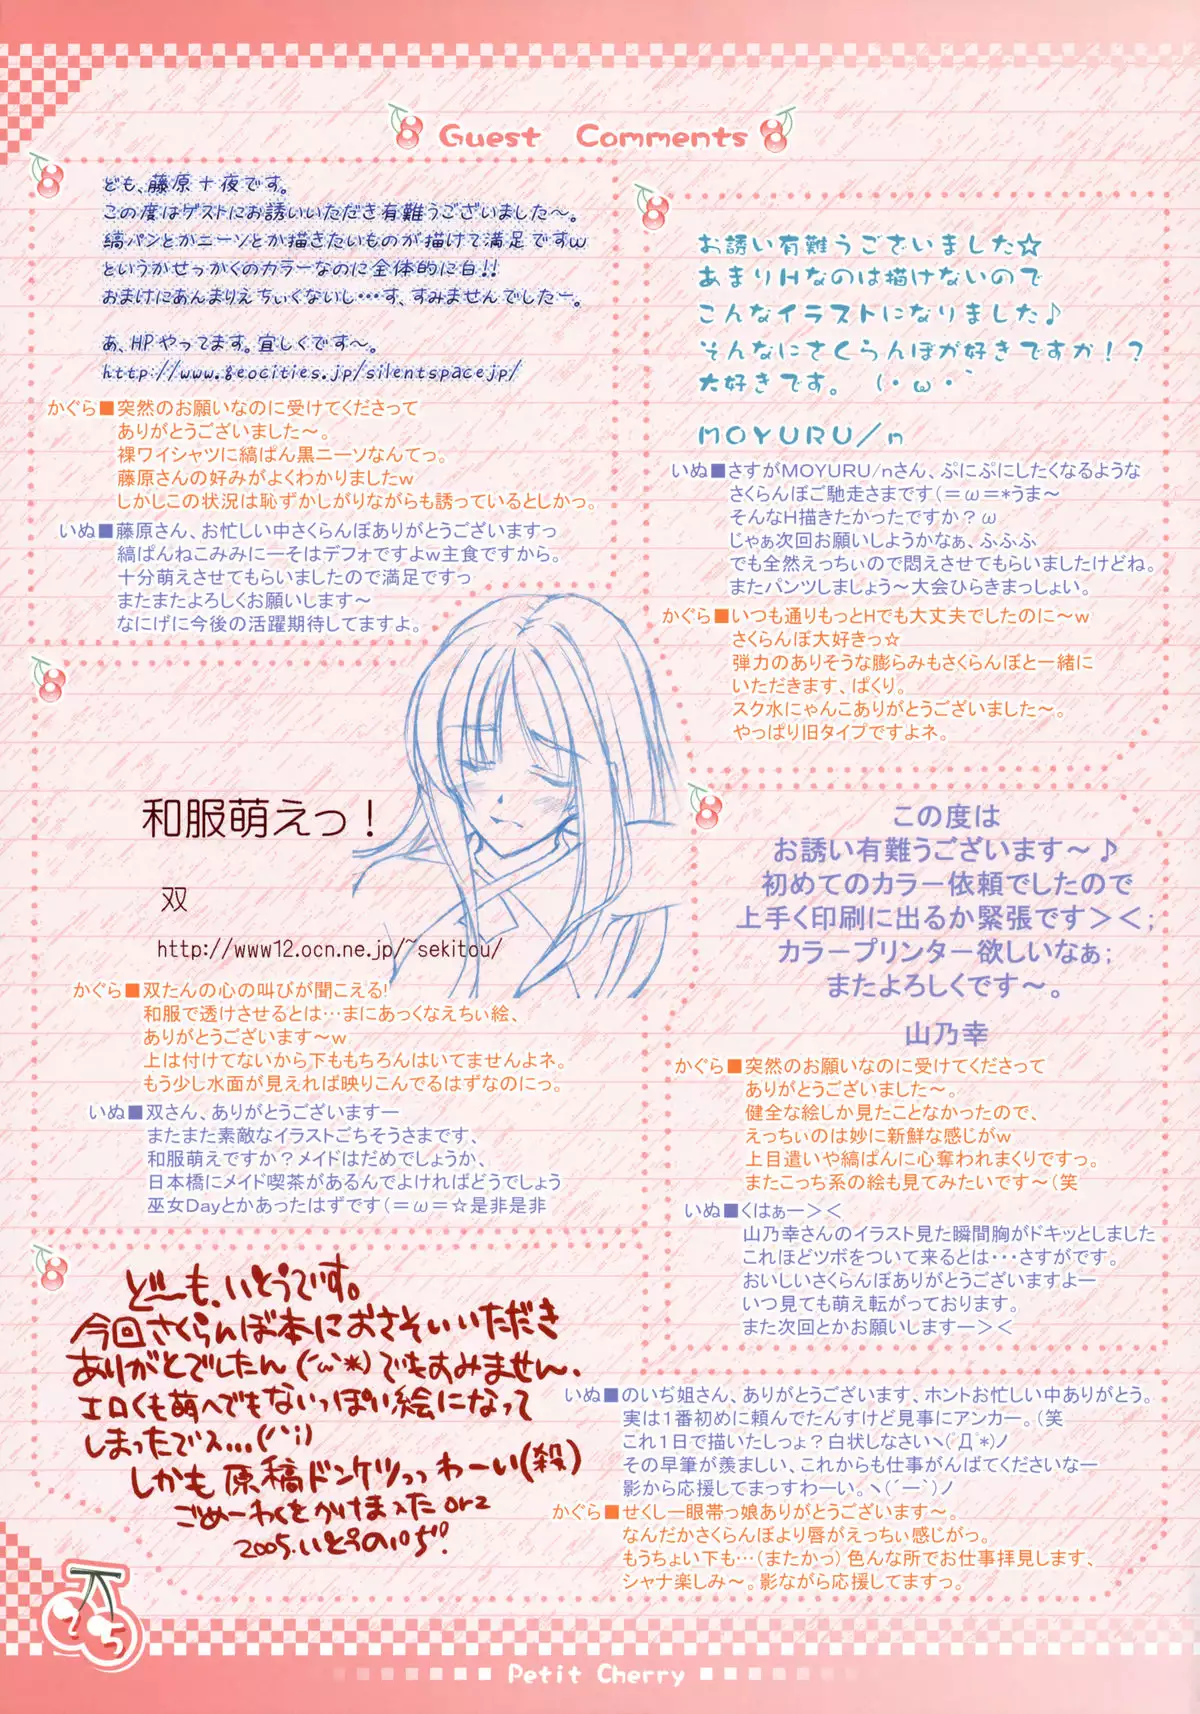 Guest Comments
ども、藤原十夜です。
この度はゲストにお誘いいただき有難うございました～。
縞パンとかニーソとか描きたいものが描けて満足ですｗ
というかせっかくのカラーなのに全体的に白!!
おまけにあんまりえちぃくないし…す、すみませんでしたー。
あ、HPやってます。宜しくです～。
http://www.geocities.jp/silentspacejp/
かぐら■突然のお願いなのに受けてくださって
ありがとうございました～。
裸ワイシャツに縞ぱん黒ニーソなんてっ。
藤原さんの好みがよくわかりましたｗ
しかしこの状況は恥ずかしがりながらも誘っているとしかっ。
いぬ■藤原さん、お忙しい中さくらんぼありがとうございますっ
縞ぱんねこみみにーそはデフォですよｗ主食ですから。
十分萌えさせてもらいましたので満足ですっ
またまたよろしくお願いします～
なにげに今後の活躍期待してますよ。
お誘い有難うございました☆
あまりHなのは描けないので
こんなイラストになりました♪
そんなにさくらんぼが好きですか！？
大好きです。（・ω・｀
MOYURU/n
いぬ■さすがMOYURU/nさん、ぷにぷにしたくなるような
さくらんぼご馳走さまです（＝ω＝*うま～
そんなH描きたかったですか？ω
じゃぁ次回お願いしようかなぁ、ふふふ
でも全然えっちぃので悶えさせてもらいましたけどね。
またパンツしましょう～大会ひらきまっしょい。
かぐら■いつも通りもっとHでも大丈夫でしたのに～ｗ
さくらんぼ大好きっ☆
弾力のありそうな膨らみもさくらんぼと一緒に
いただきます、ぱくり。
スク水にゃんこありがとうございました～。
やっぱり旧タイプですよネ。
和服萌えっ！
双
http://www12.ocn.ne.jp/~sekitou/
かぐら■双たんの心の叫びが聞こえる！
和服で透けさせるとは…まにあっくなえちぃ絵、
ありがとうございます～ｗ
上は付けてないから下ももちろんはいてませんよネ。
もう少し水面が見えれば映りこんでるはずなのにっ。
いぬ■双さん、ありがとうございますー
またまた素敵なイラストごちそうさまです、
和服萌えですか？メイドはだめでしょうか、
日本橋にメイド喫茶があるんでよければどうでしょう
巫女Dayとかあったはずです（＝ω＝☆是非是非
この度は
お誘い有難うございます～♪
初めてのカラー依頼でしたので
上手く印刷に出るか緊張です＞＜；
カラープリンター欲しいなぁ；
またよろしくです～。
山乃幸
かぐら■突然のお願いなのに受けてくださって
ありがとうございました～。
健全な絵しか見たことなかったので、
えっちぃのは妙に新鮮な感じがｗ
上目遣いや縞ぱんに心奪われまくりですっ。
またこっち系の絵も見てみたいです～（笑
いぬ■くはぁー＞＜
山乃幸さんのイラスト見た瞬間胸がドキッとしました
これほどツボをついて来るとは・・・さすがです。
おいしいさくらんぼありがとうございますよー
いつ見ても萌え転がっております。
また次回とかお願いしますー＞＜
どーも、いとうです。
今回さくらんぼ本におさそいいただき
ありがとでしたん(´ω`*)でもすみません、
エロくも萌へでもないっぽい絵になって
しまったでス…(^^;)
しかも原稿ドンケツっっわーい(殺)
ごめーわくをかけまスた orz
2005.いとうのいぢ!
いぬ■のいぢ姐さん、ありがとうございます、ホントお忙しい中ありがとう。
実は１番初めに頼んでたんすけど見事にアンカー。（笑
これ１日で描いたしょ？白状しなさいヽ(ﾟДﾟ*)ノ
その早筆が羨ましい、これからも仕事がんばてくださいなー
影から応援してまっすわーい。ヽ(´ー｀)ノ
かぐら■せくしー眼帯っ娘ありがとうございます～。
なんだかさくらんぼより唇がえっちぃ感じがっ。
もうちょい下も…（またかっ）色んな所でお仕事拝見します、
シャナ楽しみ～。影ながら応援してますっ。
25
Petit Cherry